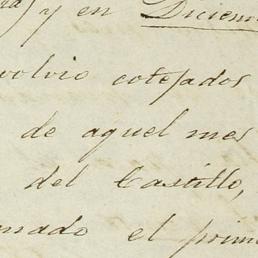 y en Diciem
volvio cotejados
de aquel mes
del Castillo,
mado el prim